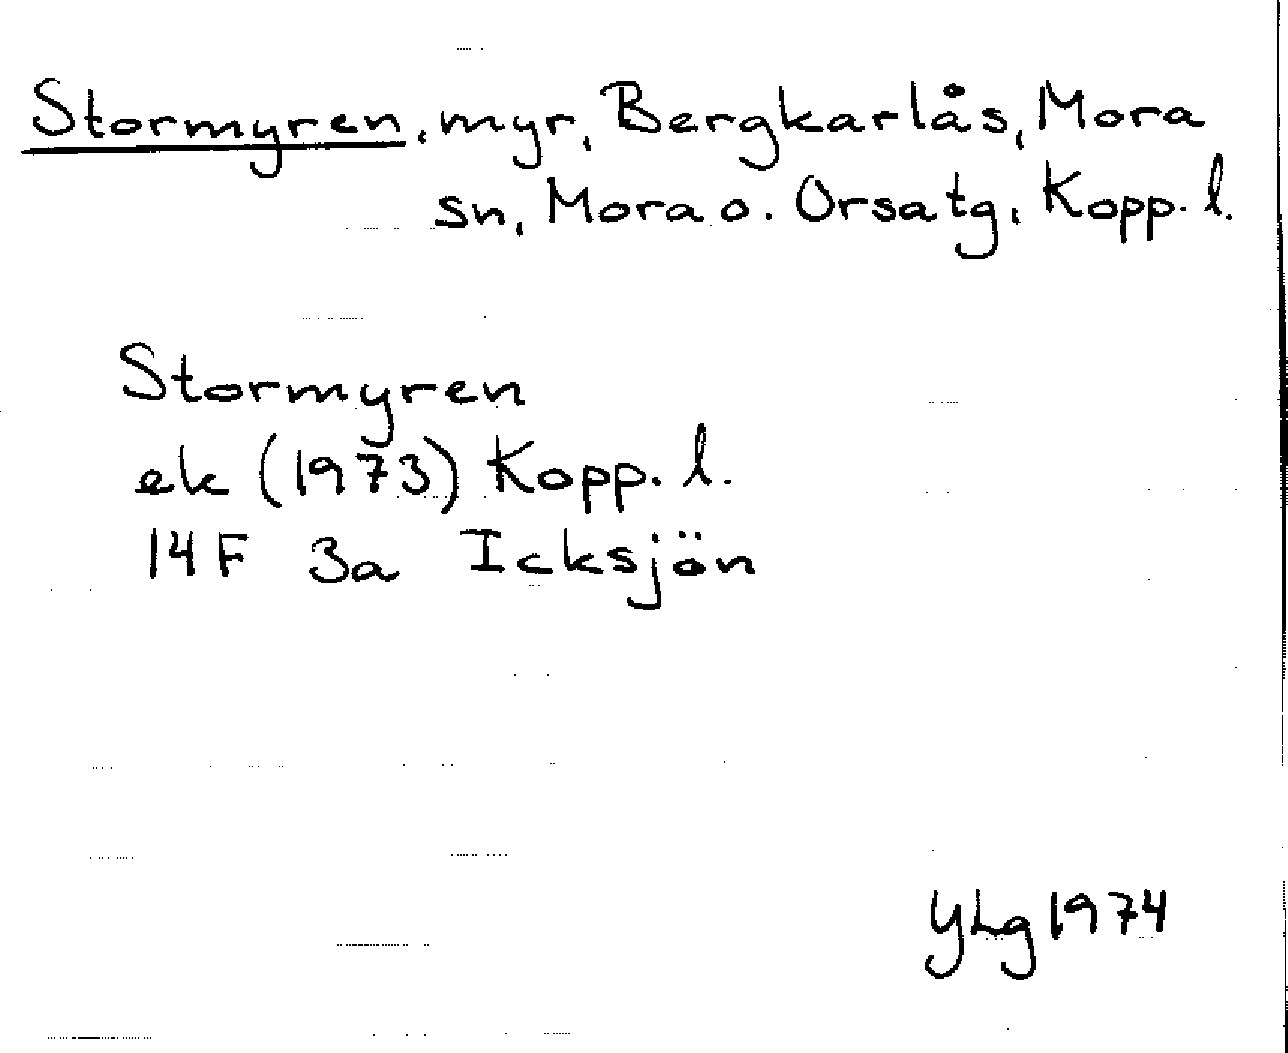 Stormyren, myr, Bergkarlås, Mora
sn, Mora o. Orsa tg, Kopp. l.
Stormyren
ek (1973) Kopp. l.
14F 3a Icksjön
YLg 1974